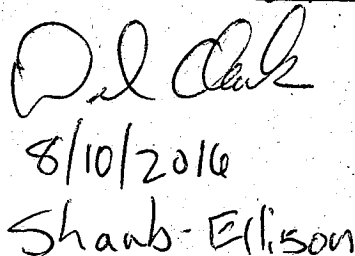 Clark
8/10/2016
Shaub-Ellison